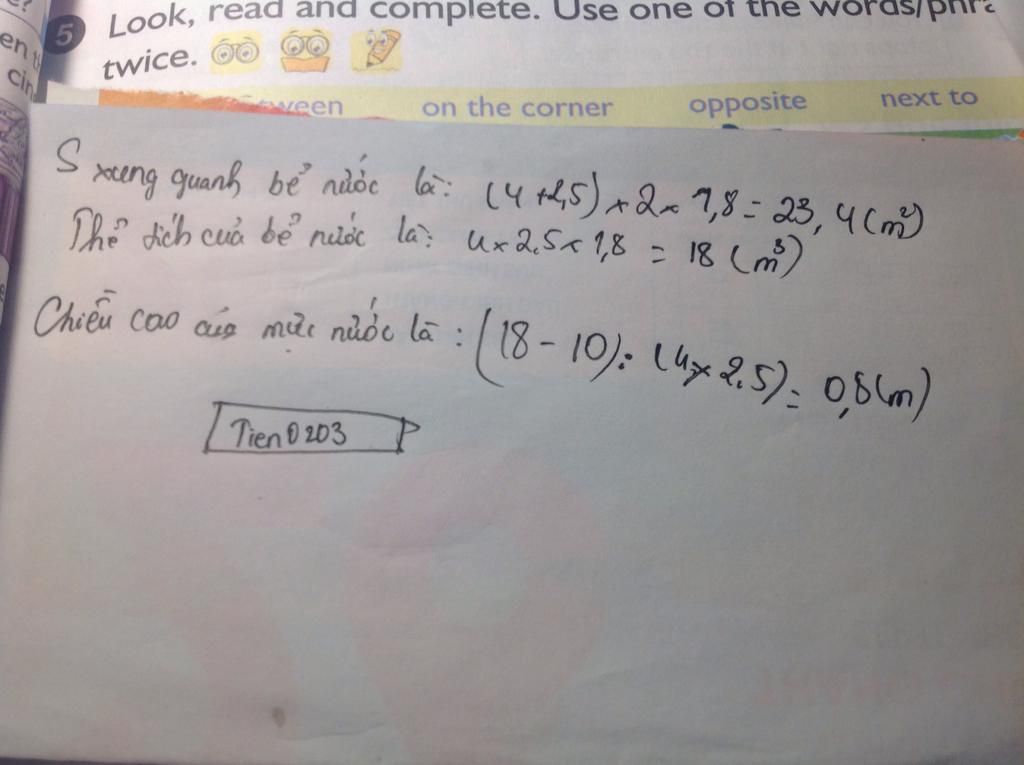 5 Look, read and complete. Use one of the words/phra
twice.
ween on the corner opposite next to
S xung quanh bể nước là: (4+2,5) x 2 x 1,8 = 23,4 (m²)
Thể tích cuả bể nước là: 4 x 2.5 x 1,8 = 18 (m³)
Chiều cao của mức nước là : (18 - 10) : (4 x 2.5) = 0,8 (m)
Tien0203